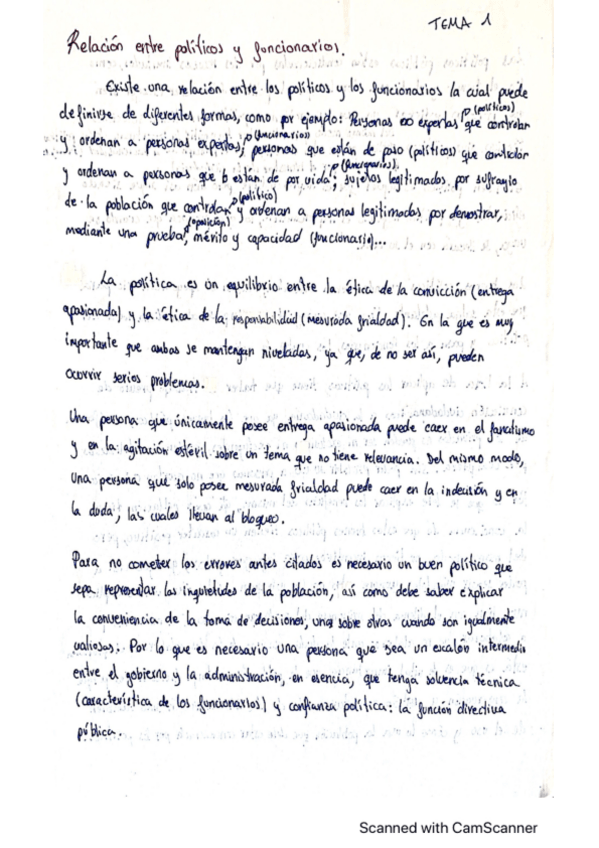 TEMA 1
Relación entre políticos y funcionarios.
Existe una relación entre los políticos y los funcionarios la cual puede
definirse de diferentes formas, como por ejemplo: Personas no expertas (políticos) que controlan
y ordenan a personas expertas (funcionarios); personas que están de paso (políticos) que controlan
y ordenan a personas que están de por vida (funcionarios); sujetos legitimados por sufragio
de la población que controlan (político) y ordenan a personas legitimadas por demostrar,
mediante una prueba (oposición), mérito y capacidad (funcionario)...
La política es un equilibrio entre la ética de la convicción (entrega
apasionada) y la ética de la responsabilidad (mesurada frialdad). En la que es muy
importante que ambas se mantengan niveladas, ya que, de no ser así, pueden
ocurrir serios problemas.
Una persona que únicamente posee entrega apasionada puede caer en el fanatismo
y en la agitación estéril sobre un tema que no tiene relevancia. Del mismo modo,
una persona que solo posee mesurada frialdad puede caer en la indecisión y en
la duda, las cuales llevan al bloqueo.
Para no cometer los errores antes citados es necesario un buen político que
sepa representar las inquietudes de la población, así como debe saber explicar
la conveniencia de la toma de decisiones, una sobre otras cuando son igualmente
valiosas. Por lo que es necesario una persona que sea un escalón intermedio
entre el gobierno y la administración, en esencia, que tenga solvencia técnica
(característica de los funcionarios) y confianza política: la función directiva
pública.
Scanned with CamScanner